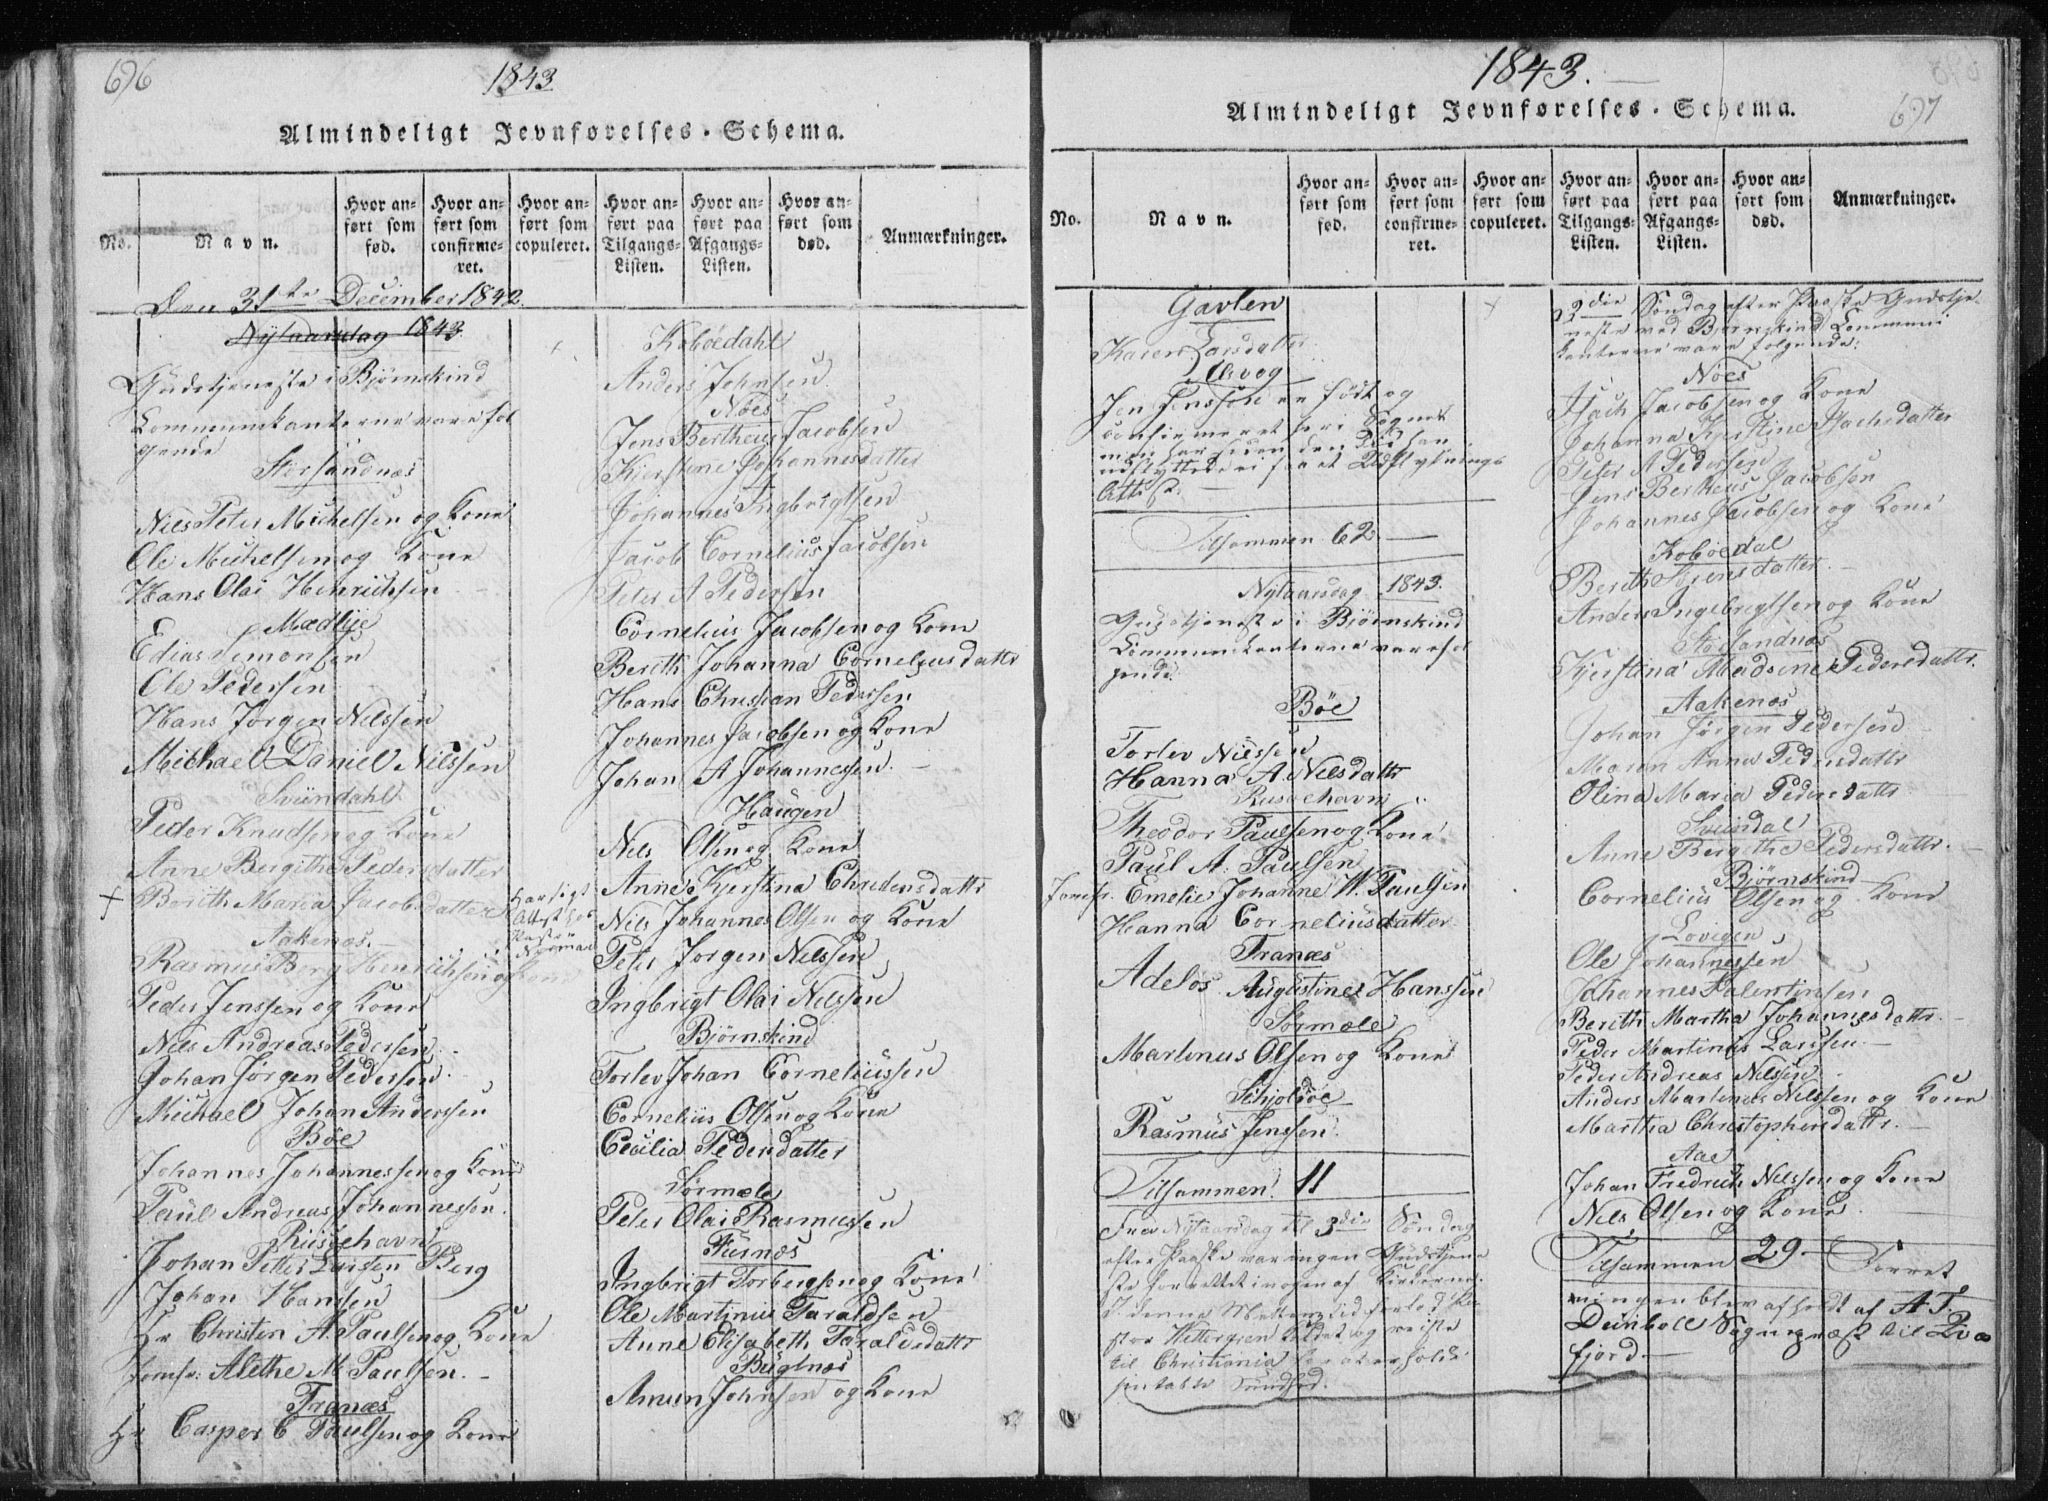 696
1843
Almindeligt Jevnførelses-Schema.
No.
Navn.
Hvor anført som fød.
Hvor anført som confirmeret.
Hvor anført som copuleret.
Hvor anført paa Tilgangs-Listen.
Hvor anført paa Afgangs-Listen.
Hvor anført som død.
Anmærkninger.
Den 31te December 1842.
Nytaarsdag 1843
Gudstjeneste i Bjørnskind
Communikanterne vare føl
gende
Storsandnæs
Niels Peter Michelsen og Kone
Ole Michelsen og Kone
Hans Olai Henrichsen
Mædlye
Edias Simonsen
Ole Pedersen
Hans Jørgen Nilssen
Michael Daniel Nilssen
Svündahl
Peder Knudsen og Kone
Anne Bergithe Pedersdatter
+ Berith Maria Jacobsdatter
Aakenæs
Rasmus Borg Henrichsen og Kone
Peder Jenssen og Kone
Nils Andreas Pedersen
Johan Jørgen Pedersen
Michael Johan Andersen
Bøe
Johannes Johannessen og Kone
Paul Andreas Johannessen
Risøehavn
Johan Petter Larsen Berg
Johan Hansen
Hr Christen A. Paulsen og Kone
Jomfr: Alethe M. Paulsen.
Tranæs
Hr Casper C Paulsen og Kone
Kobøedahl
Anders Johnsen
Nöes
Jens Bertheus Jacobsen
Kjerstine Johannesdatter
Johannes Ingbrigtsen
Jacob Cornelius Jacobsen
Peter A Pedersen
Cornelius Jacobsen og Kone
Berith Johanna Corneliusdattr
Hans Christian Pedersen
Johannes Jacobsen og Kone
Johan A Johannessen
Haugen
Nils Olsen og Kone
Anne Kjerstina Chredersdattr
Nils Johannes Olsen og Kone
Peter Jørgen Nilssen
Ingbrigt Olai Nilssen
Bjørnskind
Torlev Johan Corneliussen
Cornelius Olsen og Kone
Cecilia Pedersdatter
Sørmæle
Peter Olai Rasmussen
Furnæs
Ingbrigt Torbergsen og Kone
Ole Martinus Taraldsen
Anne Elisabeth Taraldsdattr
Buglnæs
Amun Johnsen og Kone
1843.
697
Almindeligt Jevnførelses-Schema.
No.
Navn.
Hvor anført som fød.
Hvor anført som confirmeret.
Hvor anført som copuleret.
Hvor anført paa Tilgangs-Listen.
Hvor anført paa Afgangs-Listen.
Hvor anført som død.
Anmærkninger.
Gavlen
Karen Larsdatter
Alsvog
Jen Jenssen er født og
confirmeret her i Sognet
men har siden den Tid han
udflyttede ei faaet Udflytnings
Attest.
Tilsammen 62
Nytaarsdag 1843.
Gudstjeneste i Bjørnskind
Communikanterne vare føl
gende
Bøe
Torlev Nilssen
Hanna A. Nilsdattr
Risøehavn
Theodor Paulsen og Kone
Paul A. Paulsen
Jomfr. Emelie Johanne W. Paulsen
Hanna Corneliusdatter
Tranæs
Adeløs Augustines Hanssen
Sørmæle
Martinus Olsen og Kone
Schjolbøe
Rasmus Jenssen.
Tilsammen 11
Fra Nytaarsdag til 3die Søndag
efter Paaske var ingen Gudstjene
ste forrettet i nogen af Kirkerne.
I denne Mellemtid forlod Pa
stor Kaldet og reiste
til Christiania for at erholde
sin tabte Sundhed.
3die Søndag efter Paaske Gudstje
neste ved Bjørnskind Communi
kanterne vare følgende:
Nöes
Isach Jacobsen og Kone
Johanna Kjerstine Isachsdatter
Peter A Pedersen
Jens Bertheus Jacobsen
Johannes Jacobsen og Kone
Kobøedal
Berith Sørensdatter
Anders Ingebrigtsen og Kone
Storsandnæs
Kjerstina Madsine Pedersdattr.
Aakenæs
Johan Jørgen Pedersen
Maren Anna Pedersdattr
Olina Maria Pedersdattr
Svündal
Anne Bergithe Pedersdattr.
Bjørnskind
Cornelius Olsen og Kone
Lovigen
Ole Johannessen
Johannes Valentinsen
Berith Martha Johannesdattr.
Peder Martinus Larssen.
Peder Andreas Nilssen
Anders Martinus Nilssen og Kone
Martha Christophersdattr.
Aae
Johan Fredrich Nilssen og Kone
Nils Olsen og Kone
Tilsammen 29 Forret
ningen blev afholdt af A.T.
Deinboll Sogneprest til Qvæ
fjord.